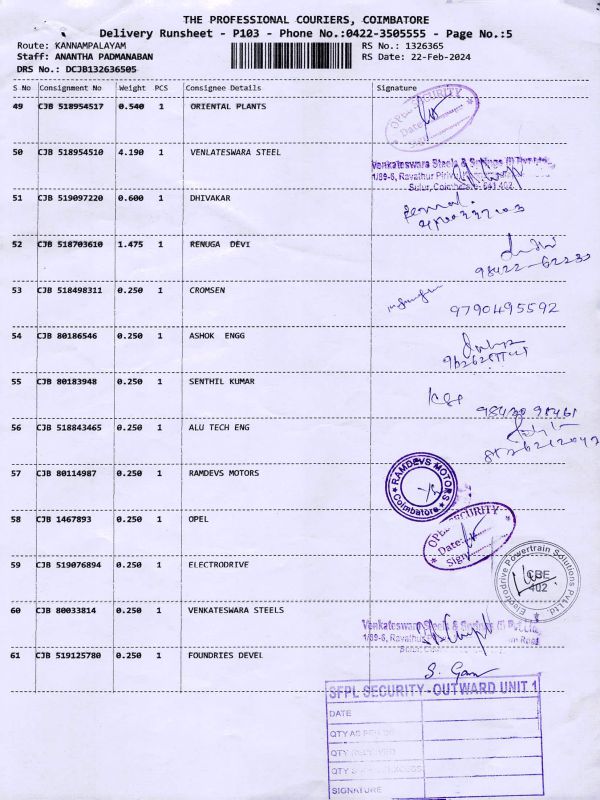 THE PROFESSIONAL COURIERS, COIMBATORE
Delivery Runsheet - P103 - Phone No.:0422-3505555 - Page No.:5
Route: KANNAMPALAYAM RS No.: 1326365
Staff: ANANTHA PADMANABAN RS Date: 22-Feb-2024
DRS No.: DCJB132636505
S No Consignment No Weight PCS Consignee Details Signature
49 CJB 518954517 0.540 1 ORIENTAL PLANTS
SECURITY
Date
Sign
50 CJB 518954510 4.190 1 VENLATESWARA STEEL
Venkateswara Steels & Springs (I) Pvt Ltd.,
1/89-6, Ravathur
Sulur, Coimbatore- 641 402.
51 CJB 519097220 0.600 1 DHIVAKAR
52 CJB 518703610 1.475 1 RENUGA DEVI
98422-62233
53 CJB 518498311 0.250 1 CROMSEN
9790495592
54 CJB 80186546 0.250 1 ASHOK ENGG
55 CJB 80183948 0.250 1 SENTHIL KUMAR
56 CJB 518843465 0.250 1 ALU TECH ENG
57 CJB 80114987 0.250 1 RAMDEVS MOTORS
RAMDEVS MOTORS
Coimbatore
58 CJB 1467893 0.250 1 OPEL
SECURITY
Date:
Sign
59 CJB 519076894 0.250 1 ELECTRODRIVE
Electrodrive Powertrain Solutions Pvt Ltd
CBE
402
60 CJB 80033814 0.250 1 VENKATESWARA STEELS
Venkateswara Steels & Springs (I) Pvt Ltd.,
1/89-6, Road
61 CJB 519125780 0.250 1 FOUNDRIES DEVEL
SFPL SECURITY - OUTWARD UNIT 1
DATE
QTY AS
QTY
QTY
SIGNATURE